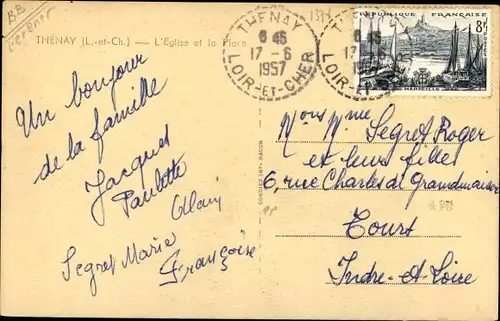 BB
1374
THENAY (L.-et-Ch.) — L'Eglise et la Place
THENAY
6 45
17 - 6
1957
LOIR-ET-CHER
6 45
17 - 6
1957
LOIR-ET-CHER
RÉPUBLIQUE FRANÇAISE
8F
MARSEILLE
Un bonjour
de la famille
Jacques
Paulette
Alain
Segret Marie
Françoise
COMBIER IMP. MACON
Segret Roger
et leurs filles
6, rue Charles de Grandmaison
Tours
Indre-et-Loire